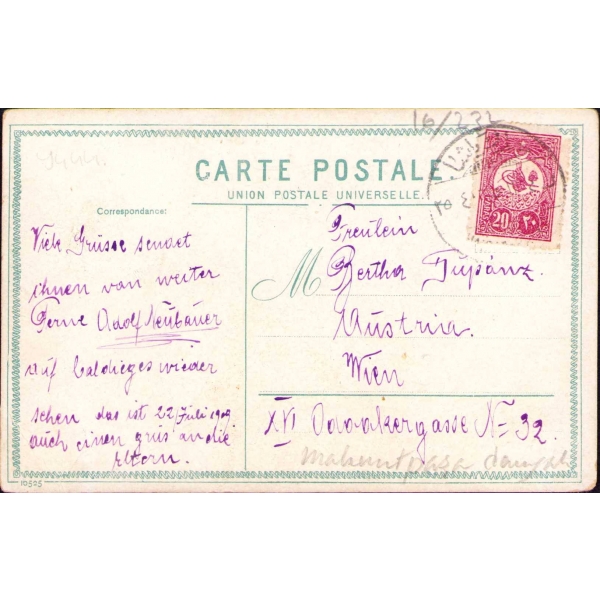 16/222
CARTE POSTALE
UNION POSTALE UNIVERSELLE.
Correspondance:
Viele Grüsse sendet
ihnen von weiter
Ferne Adolf Neubauer
auf baldiges wieder
sehen das ist 22 Juli 1909
auch einen grus an die
Eltern.
M
Freulein
Bertha Zupánz.
Austria.
Wien
XVI Odoakergasse No 32.
20 ٢٠
٢٥
10505